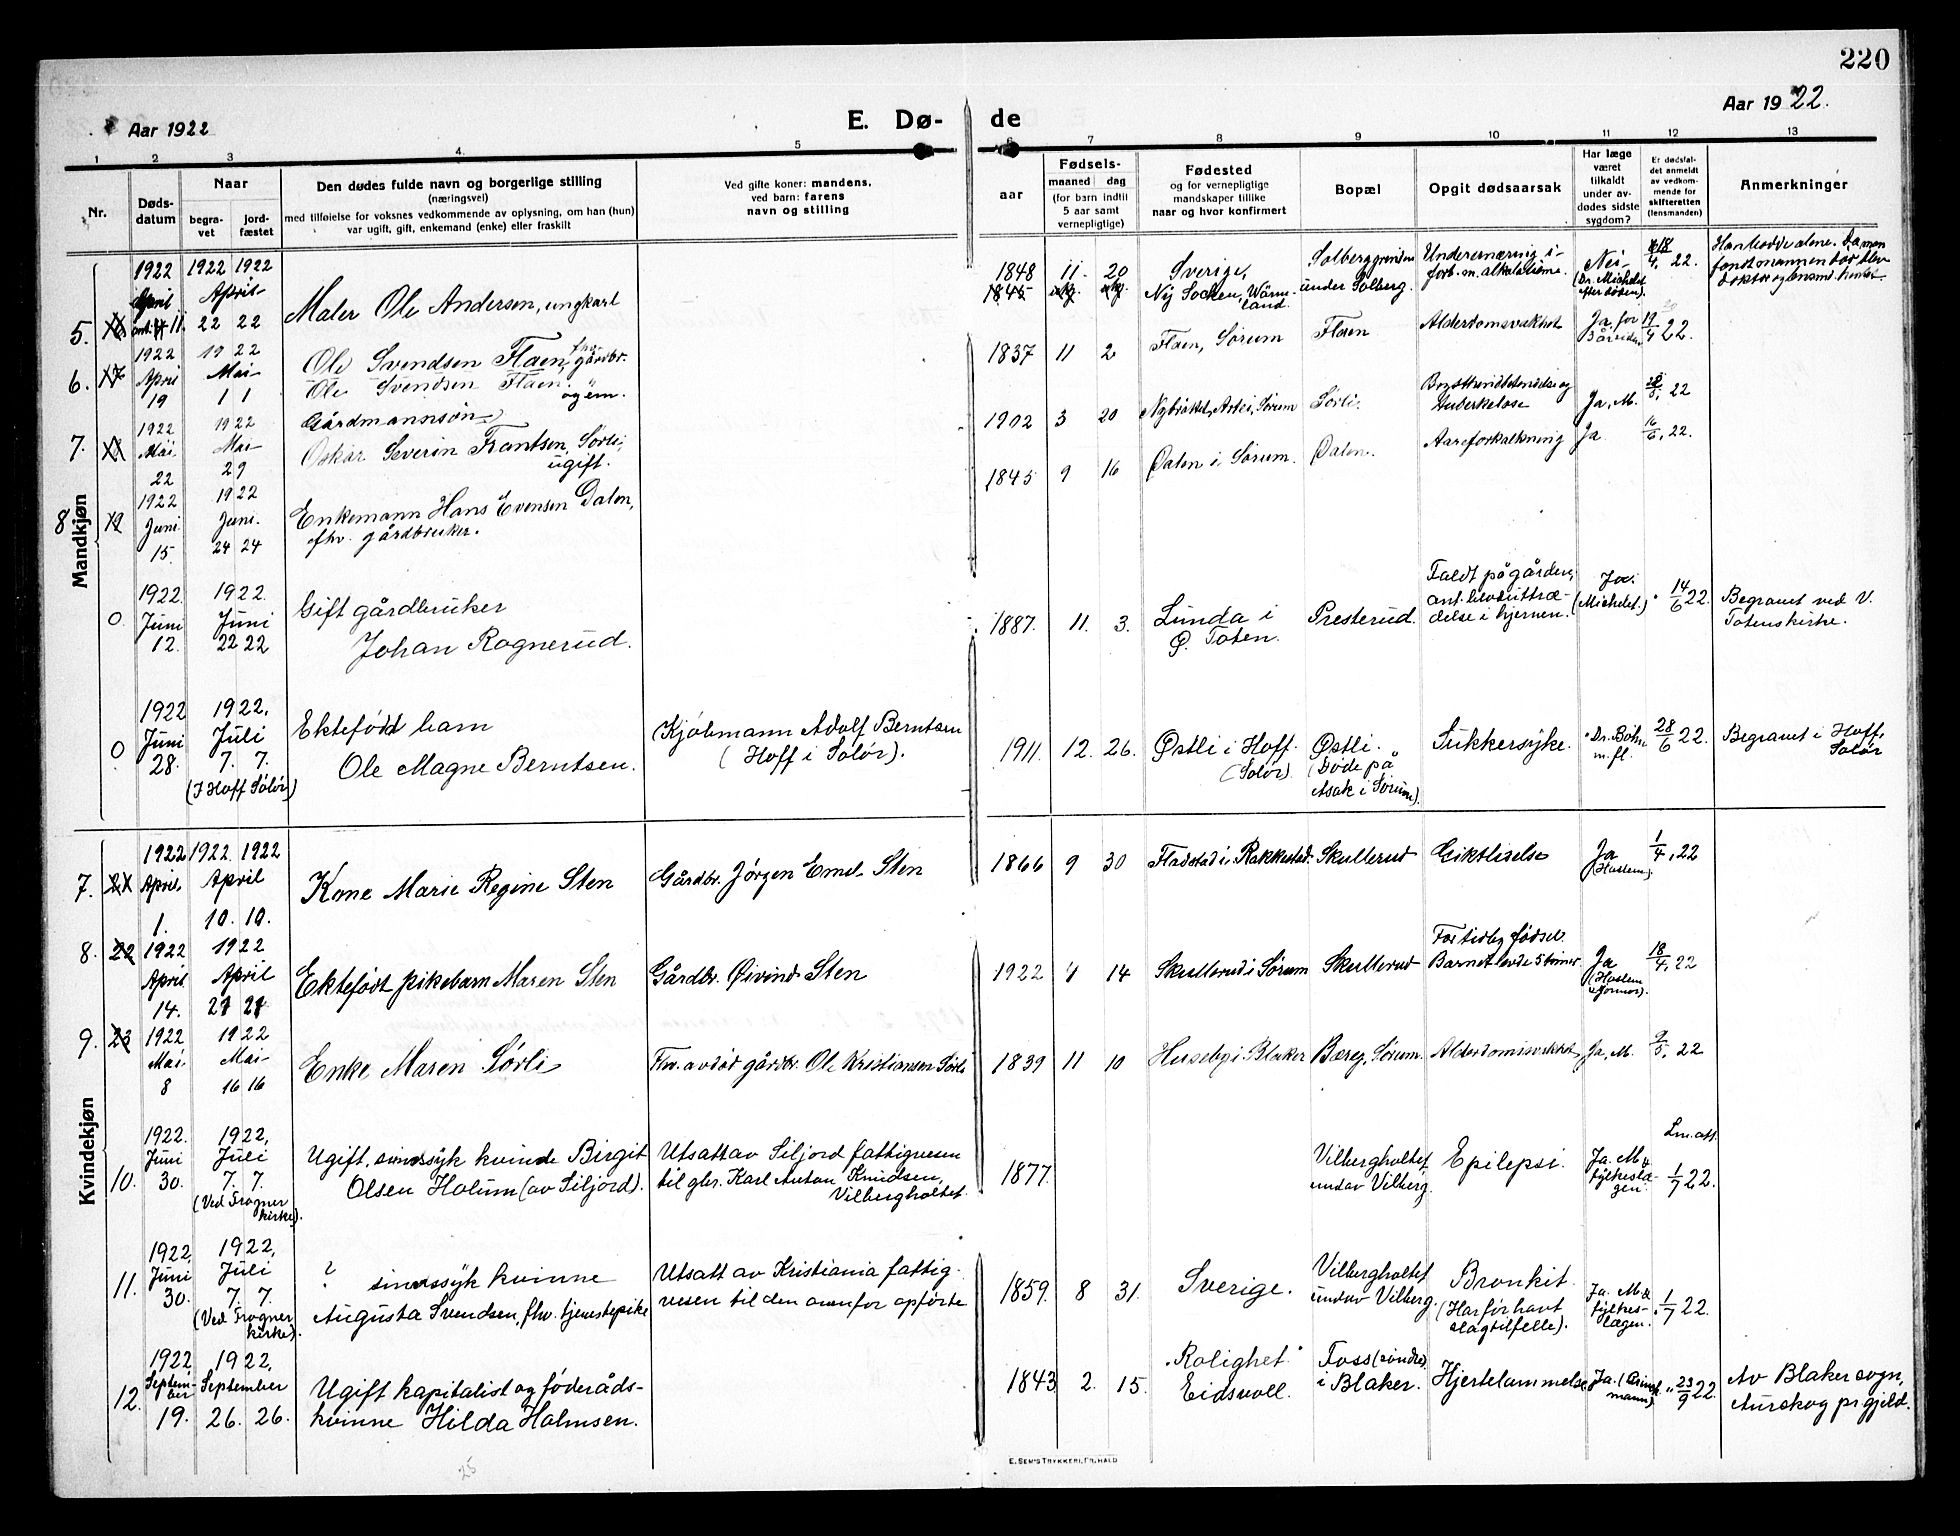 220
Aar 1922
E. Dø-
de
Aar 1922.
1 2 3 4. 5 6 7 8 9 10 11 12 13
Nr.
Døds-
datum
Naar
begra-
vet
jord-
fæstet
Den dødes fulde navn og borgerlige stilling
(næringsvei)
med tilføielse for voksnes vedkommende av oplysning, om han (hun)
var ugift, gift, enkemand (enke) eller fraskilt
Ved gifte koner: mandens,
ved barn: farens
navn og stilling
aar
Fødsels-
maaned dag
(for barn indtil
5 aar samt
vernepligtige)
Fødested
og for vernepligtige
mandskaper tillike
naar og hvor konfirmert
Bopæl
Opgit dødsaarsak
Har læge
været
tilkaldt
under av-
dødes sidste
sygdom?
Er dødsfal-
det anmeldt
av vedkom-
mende for
skifteretten
(lensmanden)
Anmerkninger
Mandkjøn
5.
1922 1922 1922
April April
11. 22 22
Maler Ole Andersen, ungkarl
1848 11. 20
1845
Sverige,
Ny Socken, Wärm-
land.
Solberggrinden
under Solberg.
Underernæring i
forb. m. alkoholisme.
Nei
(Dr. Michelet
efter døden).
18/4, 22.
Han bodde alene. Da man
fandt mannen død blev
doktor og lensmd. hentet
6. 17
1922 1922
April Mai
19 1 1
Ole Svendsen Flaen, fhv. gårdbr.
Ole Svendsen Flaen. "
og em.
1837 11 2
Flaen, Sørum
Flaen
Alderdomsvakhet
Ja, for
19/4 22.
7.
1922 1922
Mai Mai
22 29
Gårdmannssøn
Oskar Severin Frantsen, Sørli,
ugift.
1902 3 20
Sørum
Sørli.
Brysthindebetændelse og
tuberkulose
Ja, M.
22
8.
1922 1922
Juni Juni.
15. 24 24
Enkemann Hans Evensen Dalen,
fhv. gårdbruker.
1845 9 16
Dalen i Sørum.
Dalen.
Aareforkalkning
Ja
16/6, 22.
0
1922. 1922.
Juni Juni
12. 22 22
Gift gårdbruker
Johan Rognerud.
1887. 11. 3.
Lunda i
Ø. Toten.
Presterud.
Faldt på gården,
ant. bloduttræ-
delse i hjernen.
Ja.
(Michelet.)
14/6 22.
Begravet ved V.
Totens kirke.
0
1922 1922.
Juni Juli
28. 7. 7.
(I Hoff Solør)
Ektefødd barn
Ole Magne Berntsen.
Kjøbmann Adolf Berntsen
(Hoff i Solør).
1911. 12. 26.
Østli i Hoff.
(Solør)
Østli.
(Døde på
Asak i Sørum).
Sukkersyke.
Dr. Bøhn
m. fl.
28/6 22.
Begravet i Hoff,
Solør
Kvindekjøn
7. 21
1922 1922. 1922
April April
1. 10. 10.
Kone Marie Regine Sten
Gårdbr. Jørgen Emil Sten
1866 9 30
Fladstad i Rakkestad.
Skullerud
Giktlidelse
Ja
(Haslem)
1/4, 22
8. 22
1922 1922
April April
14. 21 21
Ektefødt pikebarn Maren Sten
Gårdbr. Øivind Sten
1922 4 14
Skullerud i Sørum
Skullerud
For tidlig fødsel.
Barnet levde 5 timer
Ja
(Haslem
18/4, 22
9. 23
1922 1922
Mai Mai
8 16 16
Enke Maren Sørli
Fhv. avdød gårdbr. Ole Kristiansen Sørli
1839 11 10
Huseby i Blaker
Sørum.
Alderdomssvakhet
Ja, M.
9/5, 22
10.
1922. 1922,
Juni Juli
30. 7. 7.
(Ved Frogner
kirke).
Ugift, sindssyk kvinde Birgit
Olsen Holum (av Siljord).
Utsatt av Siljord fattigvesen
til gbr. Karl Anton Knudsen,
Vilbergholtet.
1877.
Vilbergholtet
under Vilberg.
Epilepsi.
Ja. M. &
fylkeslæ-
gen
Lm. att.
1/7 22.
11.
1922, 1922,
Juni Juli
30. 7. 7.
(Ved Frogner
kirke).
? sindssyk kvinne
Augusta Svendsen, fhv. tjenestepike
Utsatt av Kristiania fattig-
vesen til den ovenfor opførte
1859. 8 31.
Sverige.
Vilbergholtet
under Vilberg.
Bronkit.
(Har før havt
slagtilfelle).
Ja. M. &
fylkes-
lægen.
1/7 22.
12.
1922 1922.
Septem-
ber September
19. 26. 26.
Ugift kapitalist og føderåds-
kvinne Hilda Holmsen.
1843 2. 15.
"Rolighet"
Eidsvoll.
Foss (søndre)
i Blaker.
Hjertelammelse
Ja.
23/9 22.
Av Blaker sogn,
Aurskog prgjeld.
25
E. SEM'S TRYKKERI, FR.HALD